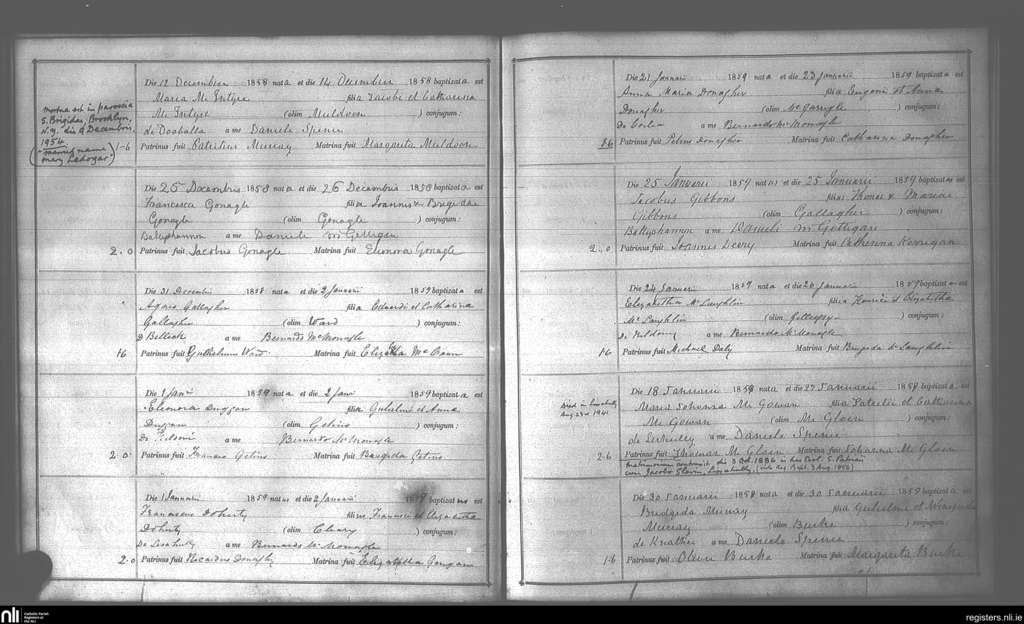 Die 12 Decembris 1858 nata et die 14 Decembris 1858 baptizata est
Maria Mc Entyre filia Jacobi et Catharina
Mc Entyre (olim Muldoon ) conjugum:
de Dooballa a me Daniele Spence
1-6 Patrinus fuit Patritius Murray Matrina fuit Margarita Muldoon
mortua est in paroecia
S. Brigidae, Brooklyn,
N.Y. die 9 Decembris,
1954
married name
Mary
Die 25 Decembris 1858 nata et die 26 Decembris 1858 baptizata est
Francesca Gonagle filia Joannis & Brigidae
Gonagle (olim Gonagle ) conjugum:
Ballyshannon a me Daniele McGettigan
2.0 Patrinus fuit Jacobus Gonagle Matrina fuit Elenora Gonagle
Die 31 Decembris 1858 nata et die 2 Januarii 1859 baptizata est
Agnes Gallagher filia Edwardi et Catharina
Gallagher (olim Ward ) conjugum:
D Belleek a me Bernardo McMonagle
16 Patrinus fuit Gulielmus Ward Matrina fuit Elizabetha Mc
Die 1 Janri 1859 nata et die 2 Jani 1859 baptizata est
Elenora Duggan filia Gulielmi et Anna
Duggan (olim ) conjugum:
De a me Bernardo McMonagle
2.0 Patrinus fuit Francis Matrina fuit Brigida
Die 1 Januarii 1859 natus et die 2 Januarii 1859 baptizatus est
Franciscus Doherty filius Francisci et Elizabetha
Doherty (olim Cleary ) conjugum:
De a me Bernardo McMonagle
2.0 Patrinus fuit Matrina fuit Elizabetha
Die 21 Januarii 1859 nata et die 23 Januarii 1859 baptizata est
Anna Maria Donagher filia Eugenii et Anna
Donagher (olim McGarrigle ) conjugum:
De a me Bernardo McMonagle
1.6 Patrinus fuit Petrus Donagher Matrina fuit Catharina Donagher
Die 25 Januarii 1859 natus et die 25 Januarii 1859 baptizatus est
Jacobus Gibbons filius Thomae & Mariae
Gibbons (olim Gallagher ) conjugum:
Ballyshannon a me Daniele McGettigan
2.0 Patrinus fuit Joannes Deery Matrina fuit Catherina Kerrigan
Die 24 Januarii 1859 nata et die 26 Januarii 1859 baptizata est
Elizabetha McLaughlin filia Henrici et Elizabetha
McLaughlin (olim Gillespey ) conjugum:
De Kildoney a me Bernardo McMonagle
16 Patrinus fuit Michael Daly Matrina fuit Brigida McLaughlin
Die 18 Januarii 1859 nata et die 27 Januarii 1859 baptizata est
Maria Johanna Mc Gowan filia Patritii et Catharina
Mc Gowan (olim Mc Gloin ) conjugum:
de a me Daniele Spence
2-6 Patrinus fuit Thomas Mc Gloin Matrina fuit Johanna Mc Gloin
Died in
Aug 23rd 1941
Matrimonium contraxit die 3 Oct. 1886 in hac Eccl. S. Patricii
cum Jacobo
Die 30 Januarii 1859 nata et die 30 Januarii 1859 baptizata est
Bridgida Murray filia Gulielmi et Margarita
Murray (olim Burke ) conjugum:
de Knather a me Daniele Spence
1-6 Patrinus fuit Oliver Burke Matrina fuit Margarita Burke
nli
Catholic Parish
Registers at
the NLI
registers.nli.ie